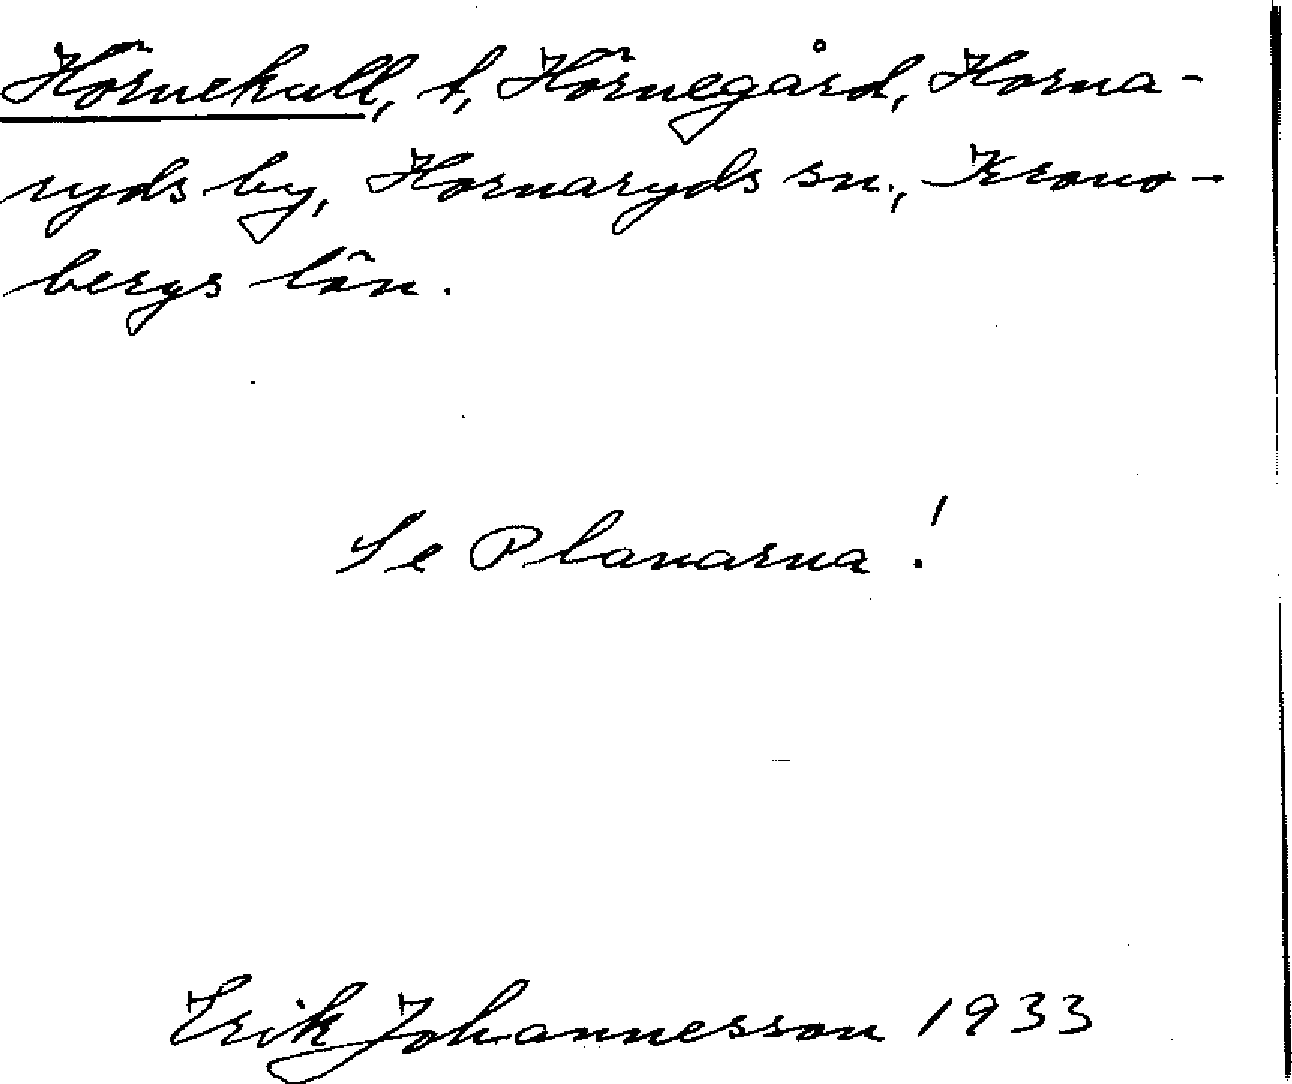 Hörnekull, t, Hörnegård, Horna-
ryds by, Hornaryds sn., Krono-
bergs län.
Se Planarna!
Erik Johannesson 1933